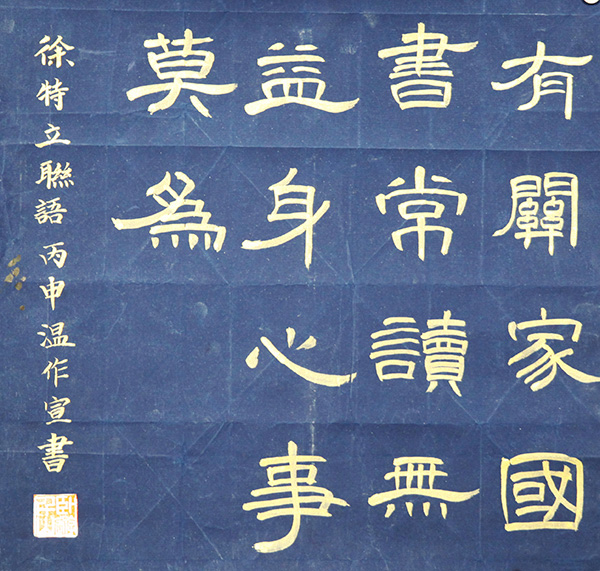 有關家國
書常讀無
益身心事
莫為
徐特立聯語 丙申温作宣書